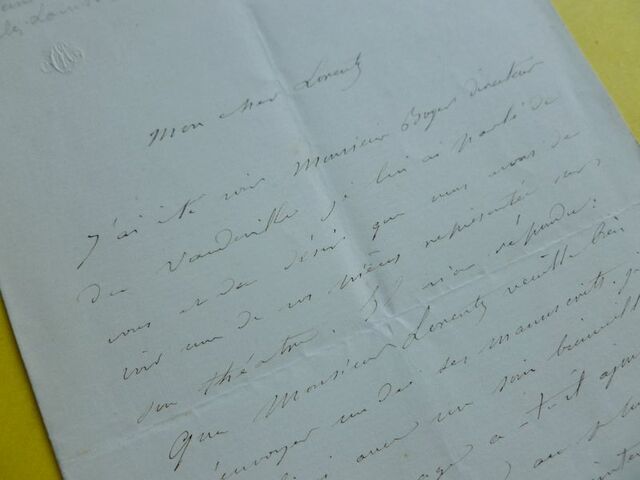 Mon cher Lorentz
J'ai été voir Monsieur Boyer directeur
du Vaudeville je lui ai parlé de
vous et du désir que vous avez de
voir une de vos pièces représentée sur
son théatre. Il m'a répondu:
Que Monsieur Lorentz veuille bien
m'envoyer un de ses manuscrits, je
lirai avec un soin bienveillant
a-t-il ajouté
au plus